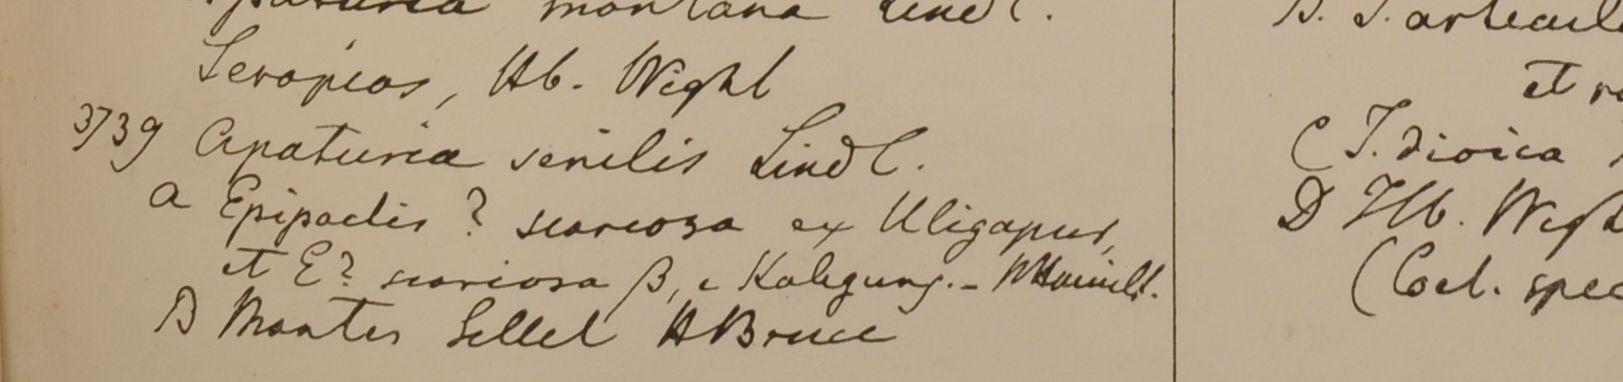 montana Lindl.
Serapias, Hb. Wight
3739 Apaturia senilis Lindl.
a Epipactis ? scariosa ex Uligapur,
et E? scariosa β, e Kalegung. - WHamilt.
B Montes Sillet HBruce
et
C T. dioica
D Hb. Wigh
(Coel. spec